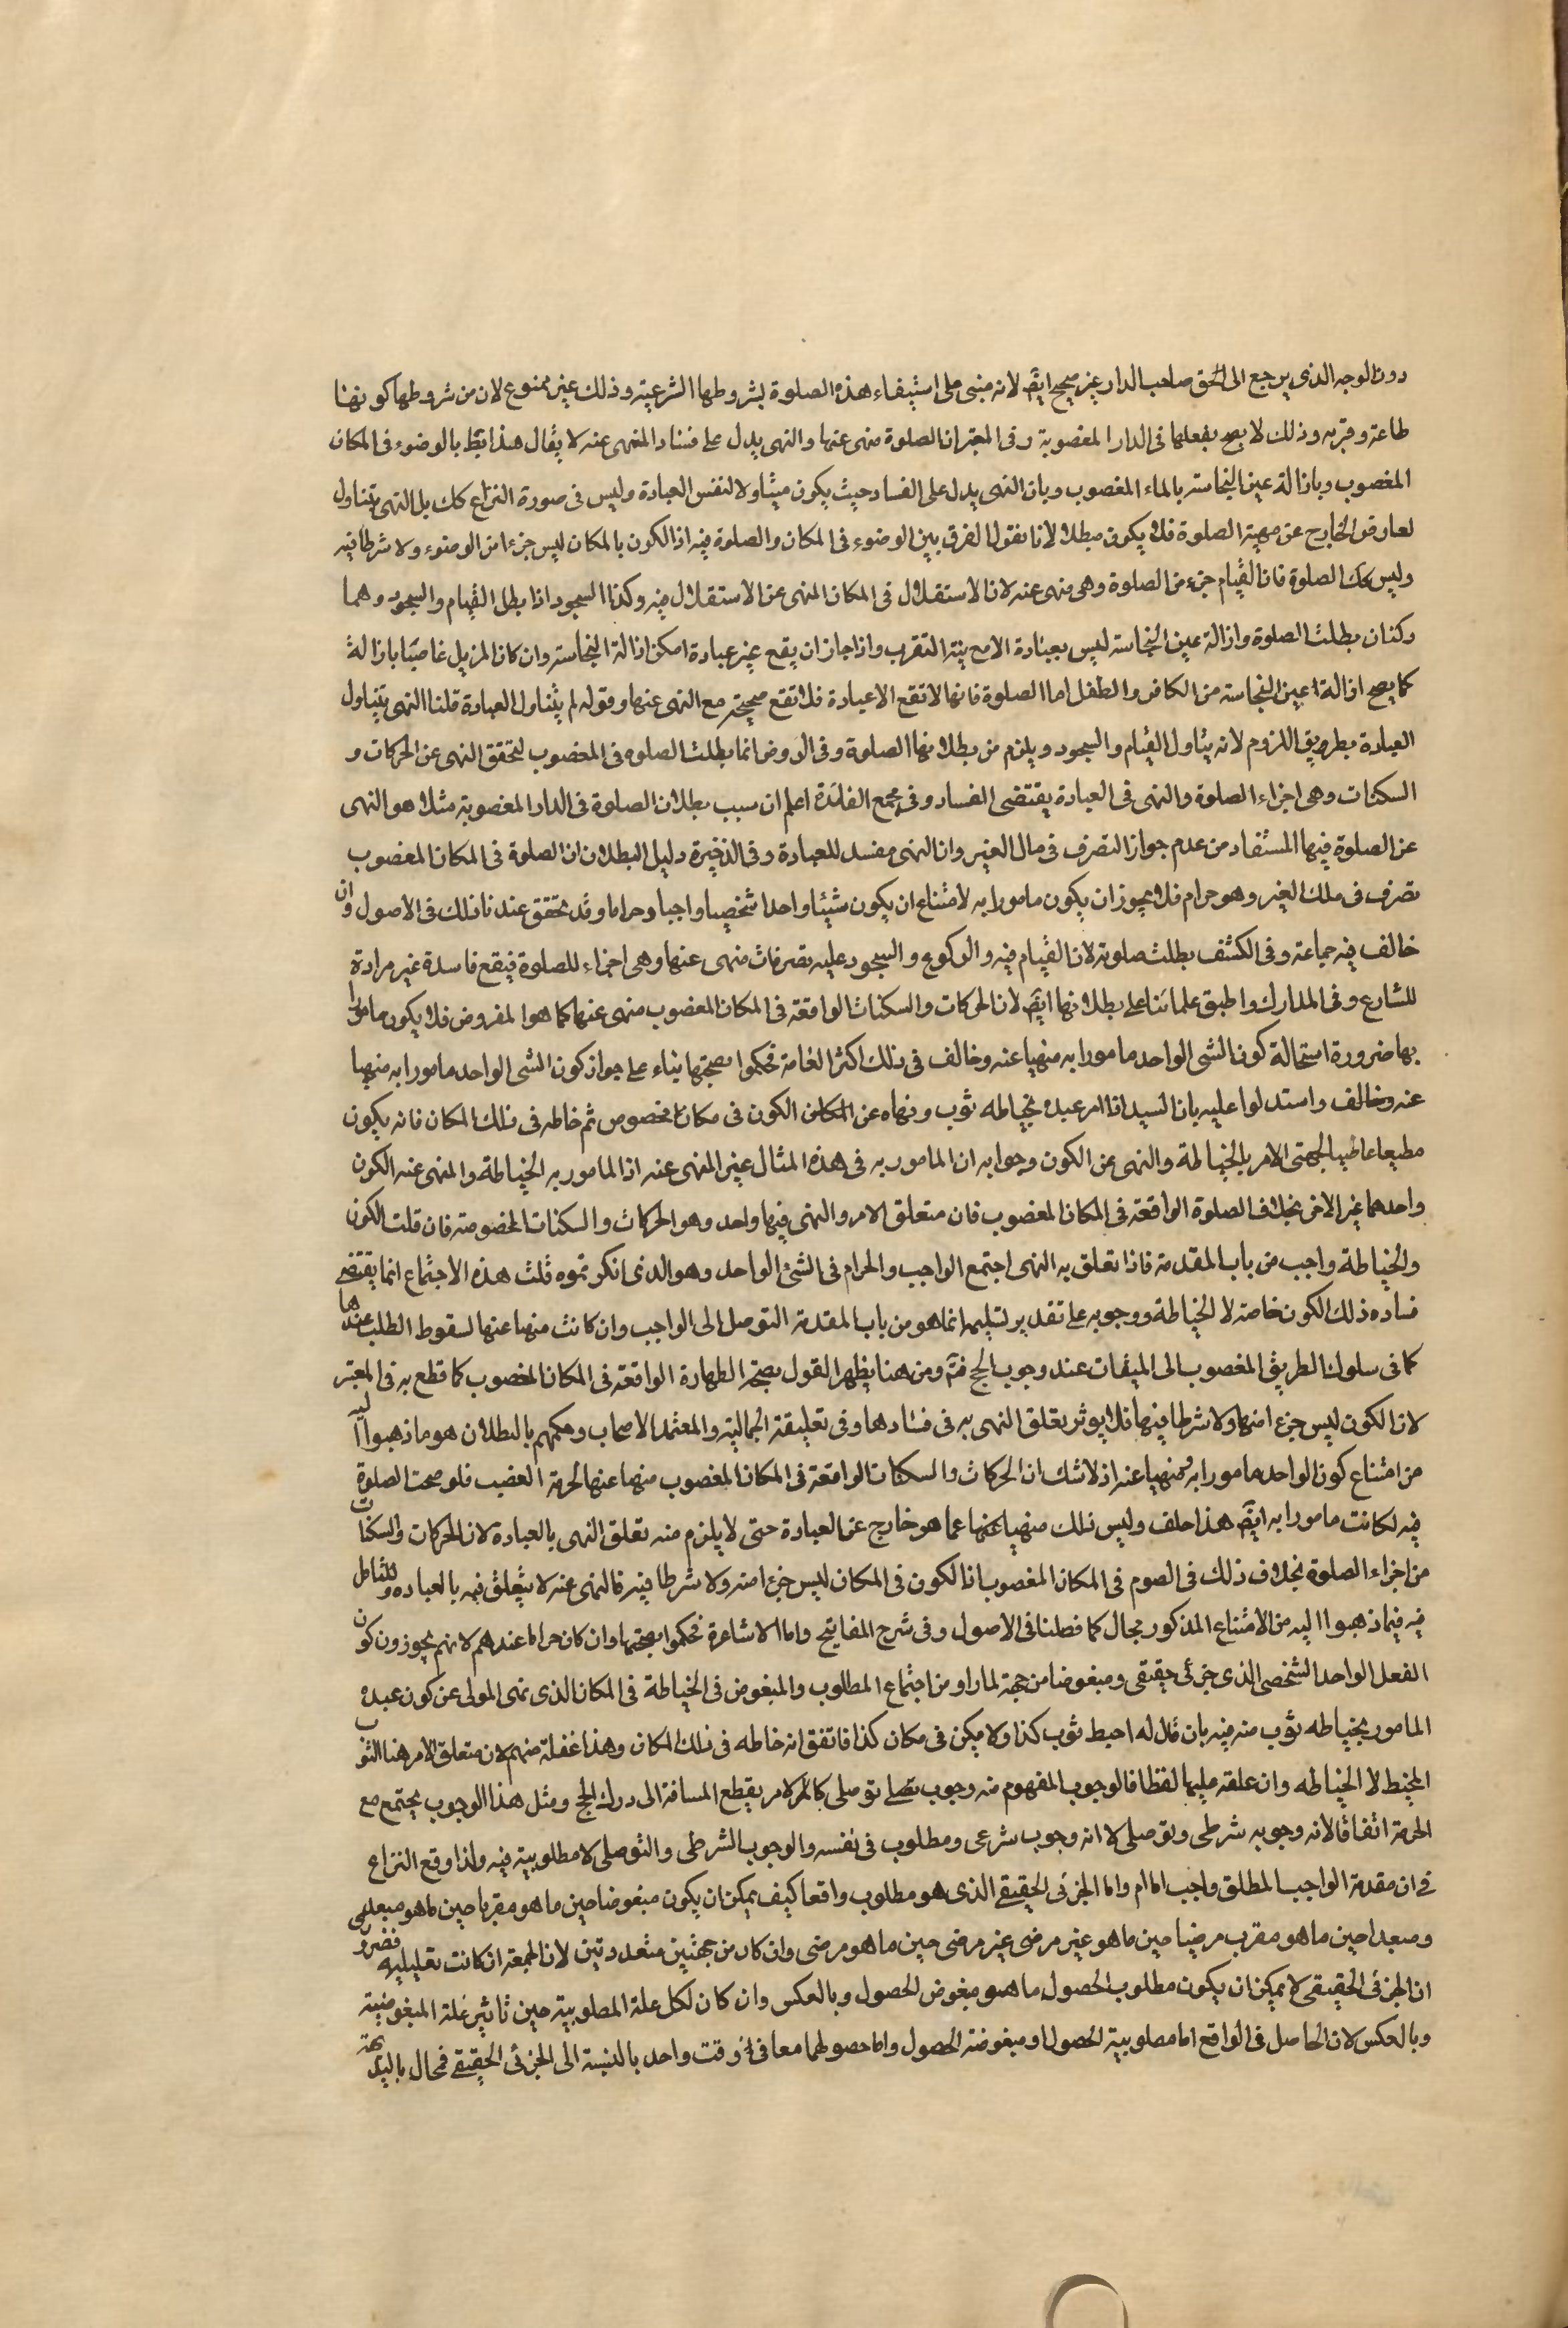 دون الوجه الذى يرجع الى الحق صاحب الدار غير صحيح ايضا لانه مبنى على استيفاء هذه الصلوة بشروطها الشرعية وذلك غير ممنوع لان من شروطها كونها
طاعة وقربه وذلك لا يصح بفعلها فى الدار المغصوبة وفى المعتبر ان الصلوة منهى عنها والنهى يدل على فساد المنهى عنه لا يقال هذا يبطل بالوضوء فى المكان
المغصوب وبازالة عين النجاسة بالماء المغصوب وبان النهى يدل على الفساد حيث يكون متناولا لنفس العبادة وليس فى صورة النزاع كك بل النهى يتناول
لعارض الخارج عن مهية الصلوة فلا يكون مبطلا لانا نقول الفرق بين الوضوء فى المكان والصلوة فيه اذ الكون بالمكان ليس جزءا من الوضوء ولا شرطا فيه
وليس كك الصلوة فان القيام جزء من الصلوة وهى منهى عنه لان الاستقلال فى المكان المنهى عن الاستقلال فيه وكذا السجود اذا بطل القيام والسجود وهما
ركنان بطلت الصلوة وازالة عين النجاسة ليس بعبادة الا مع نية التقرب واذا جاز ان يقع غير عبادة امكن ازالة النجاسة وان كان المزيل غاصبا بازالة
كما يصح ازالة عين النجاسة من الكافر والطفل اما الصلوة فانها لا تقع الا عبادة فلا تقع صحيحة مع النهى عنها وقوله لم يتناول العبادة قلنا النهى يتناول
العبادة بطريق اللزوم لانه يتاول القيام والسجود ويلزم من بطلانها الصلوة وفى الروض انما بطلت الصلوه فى المغصوب لتحقق النهى عن الحركات و
السكنات وهى اجزاء الصلوة والنهى فى العبادة يقتضى الفساد وفى مجمع الفائدة اعلم ان سبب بطلان الصلوة فى الدار المغصوبة مثلا هو النهى
عن الصلوة فيها المستفاد من عدم جواز التصرف فى مال الغير وان النهى مفسد للعبادة وفى الذخيرة دليل البطلان ان الصلوة فى المكان المغصوب
تصرف فى ملك الغير وهو حرام فلا يجوز ان يكون مامورا به لامتناع ان يكون شيئا واحدا شخصيا واجبا وحراما وقد تحقق عندنا ذلك فى الاصول وان
خالف فيه جماعة وفى الكشف بطلت صلوته لان القيام فيه والركوع والسجود عليه تصرفات منهى عنها وهى اجزاء للصلوة فيقع فاسدة غير مرادة
للشارع وفى المدارك واطبق علمائنا على بطلانها ايضا لان الحركات والسكنات الواقعة فى المكان المغصوب منهى عنها كما هو المفروض فلا يكون مامورا
بها ضرورة استحالة كون الشى الواحد مامورا به منهيا عنه وخالف فى ذلك اكثر العامة فحكموا بصحتها بناء على جواز كون الشى الواحد مامورا به منهيا
عنه وخالف واستدلوا عليه بان السيد اذا امر عبده بخياطه ثوب ونهاه عن الكون فى مكان مخصوص ثم خاطه فى ذلك المكان فانه يكون
مطيعا عاصيا لجهتى الامر بالخياطة والنهى عن الكون وجوابه ان المامور به فى هذه المثال غير المنهى عنه اذ المامور به الخياطة والمنهى عنه الكون
واحدهما غير الاخر بخلاف الصلوة الواقعة فى المكان المغصوب فان متعلق الامر والنهى فيها واحد وهو الحركات والسكنات المخصوصة فان قلت الكون
والخياطة واجب من باب المقدمة فاذا تعلق به النهى اجتمع الواجب والحرام فى الشئ الواحد وهو الذى انكرتموه قلت هذه الاجتماع انما يقتضى
فساده ذلك الكون خاصة لا الخياطة ووجوبه على تقدير تسليمه انما هو من باب المقدمة التوصل الى الواجب وان كانت منهيا عنها لسقوط الطلب عندها
كما فى سلوك الطريق المغصوب الى الميقات عند وجوب الحج فتم ومن هنا يظهر القول بصحة الطهارة الواقعة فى المكان المغصوب كما قطع به فى المعتبر
لان الكون ليس جزءا منها ولا شرطا فيها فلا يوثر تعلق النهى به فى فسادها وفى تعليقة الجمالية والمعتمد الاصحاب وحكمهم بالبطلان هو ما ذهبوا اليه
من امتناع كون الواحد مامورا به ومنهيا عنه اذ لا شك ان الحركات والسكنات الواقعة فى المكان المغصوب منهيا عنها لحرمة الغصب فلو صحت الصلوة
فيه لكانت مامورا به ايضا هذا خلف وليس ذلك منهيا عنها عما هو خارج عن العبادة حتى لا يلزم منه تعلق النهى بالعبادة لان الحركات والسكنات
من اجزاء الصلوة بخلاف ذلك فى الصوم فى المكان المغصوب اذ الكون فى المكان ليس جزءا منه ولا شرطا فيه فالنهى عنه لا يتعلق فيه بالعباده وللتامل
فيه فيما ذهبوا اليه من الامتناع المذكور مجال كما فصلنا فى الاصول وفى شرح المفاتيح واما الاشاعرة فحكموا بصحتها وان كان حراما عندهم لانهم يجوزون كون
الفعل الواحد الشخصى الذى جزئى حقيقى ومبغوضا من جهة لما راو من اجتماع المطلوب والمبغوض فى الخياطة فى المكان الذى نهى المولى عن كون عبده
المامور بخياطه ثوب منه فيه بان قال له احيط ثوب كذا ولا يكن فى مكان كذا فاتفق انه خاطه فى ذلك المكان وهذا غفلة منهم لان متعلق الامر هنا الثوب
المخيط لا الخياطه وان علقه عليها لفظا فالوجوب المفهوم منه وجوب توصلى كالامر بقطع المسافة الى درك الحج ومثل هذا الوجوب يجتمع مع
الحرمة اتفاقا لانه وجوبه شرطى وتوصلى لا انه وجوب شرعى ومطلوب فى نفسه والوجوب الشرطى والتوصلى لا مطلوبية فيه ولذا وقع النزاع
فى ان مقدمة الواجب المطلق واجب ام لا واما الجزئى الحقيقى الذى هو مطلوب واقعا كيف يمكن ان يكون مبغوضا حين ما هو مقربا حين ما هو
ومبعدا حين ما هو مقرب مرضيا حين ما هو غير مرضى غير مرضى حين ما هو مرضى وان كان من جهتين متعددتين لان الجهة ان كانت تعليلية فضرورة
ان الجزئى الحقيقى لا يمكن ان يكون مطلوب الحصول ما هو مبغوض الحصول وبالعكس وان كان لكل علة المطلوبية حين تاثير علة المبغوضية
وبالعكس لان الحاصل فى الواقع اما مطلوبية الحصول او مبغوضة الحصول واما حصولهما معا فى وقت واحد بالنسبة الى الجزئى الحقيقى فمحال بالبديهة